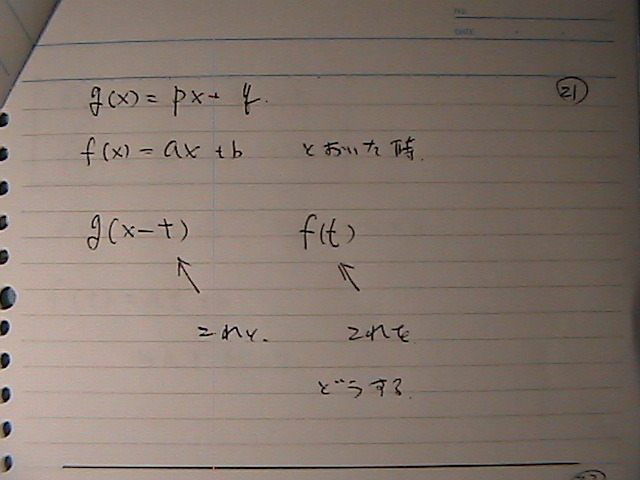 NO.
DATE
㉑
g(x) = px + q.
f(x) = ax + b とおいた時.
g(x-t) f(t)
これと. これを
どうする.